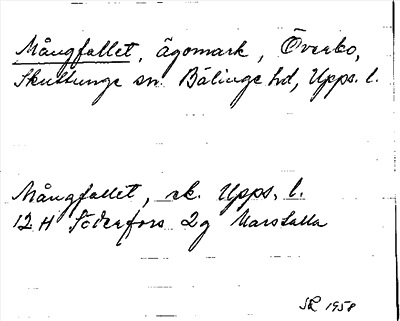 Mångfallet, Ägomark, Överbo,
Skuttunge sn. Bälinge hd, Upps. l.
Mångfallet, sk. Upps. l.
12 H Söderfors 2g Marstalla
SR 1958